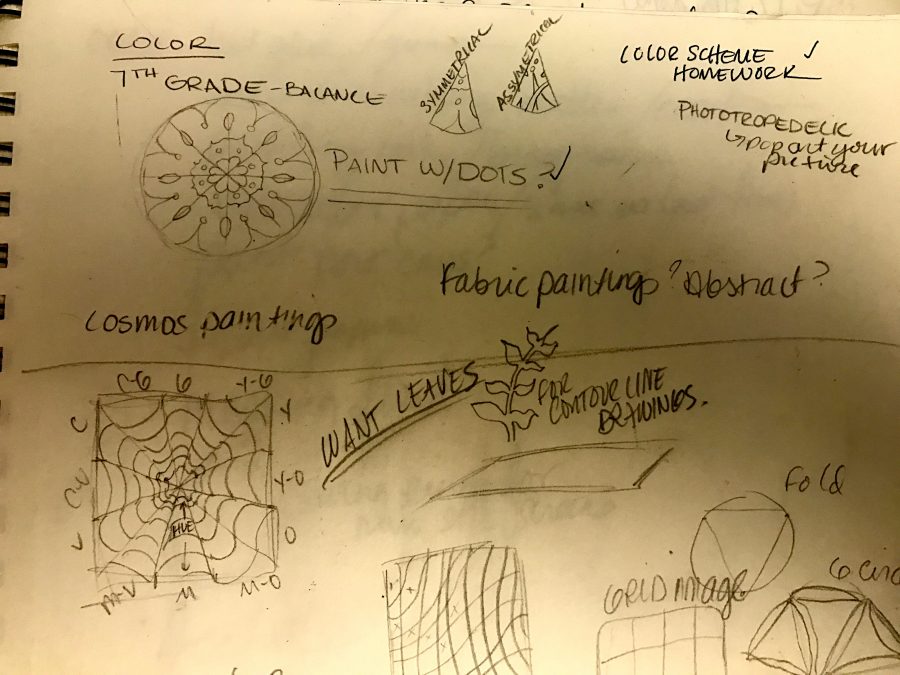 COLOR
7TH GRADE-BALANCE
SYMMETRICAL
ASSYMETRICAL
COLOR SCHEME ✓
HOMEWORK
PHOTOTROPEDELIC
↳ pop art your
picture
PAINT W/DOTS? ✓
Fabric paintings? Abstract?
Cosmos paintings
WANT LEAVES
FOR
CONTOUR LINE
DRAWINGS.
C-G G Y-G
C Y
C-V Y-O
V O
HUE
M-V M M-O
Fold
GRID image
6 circ